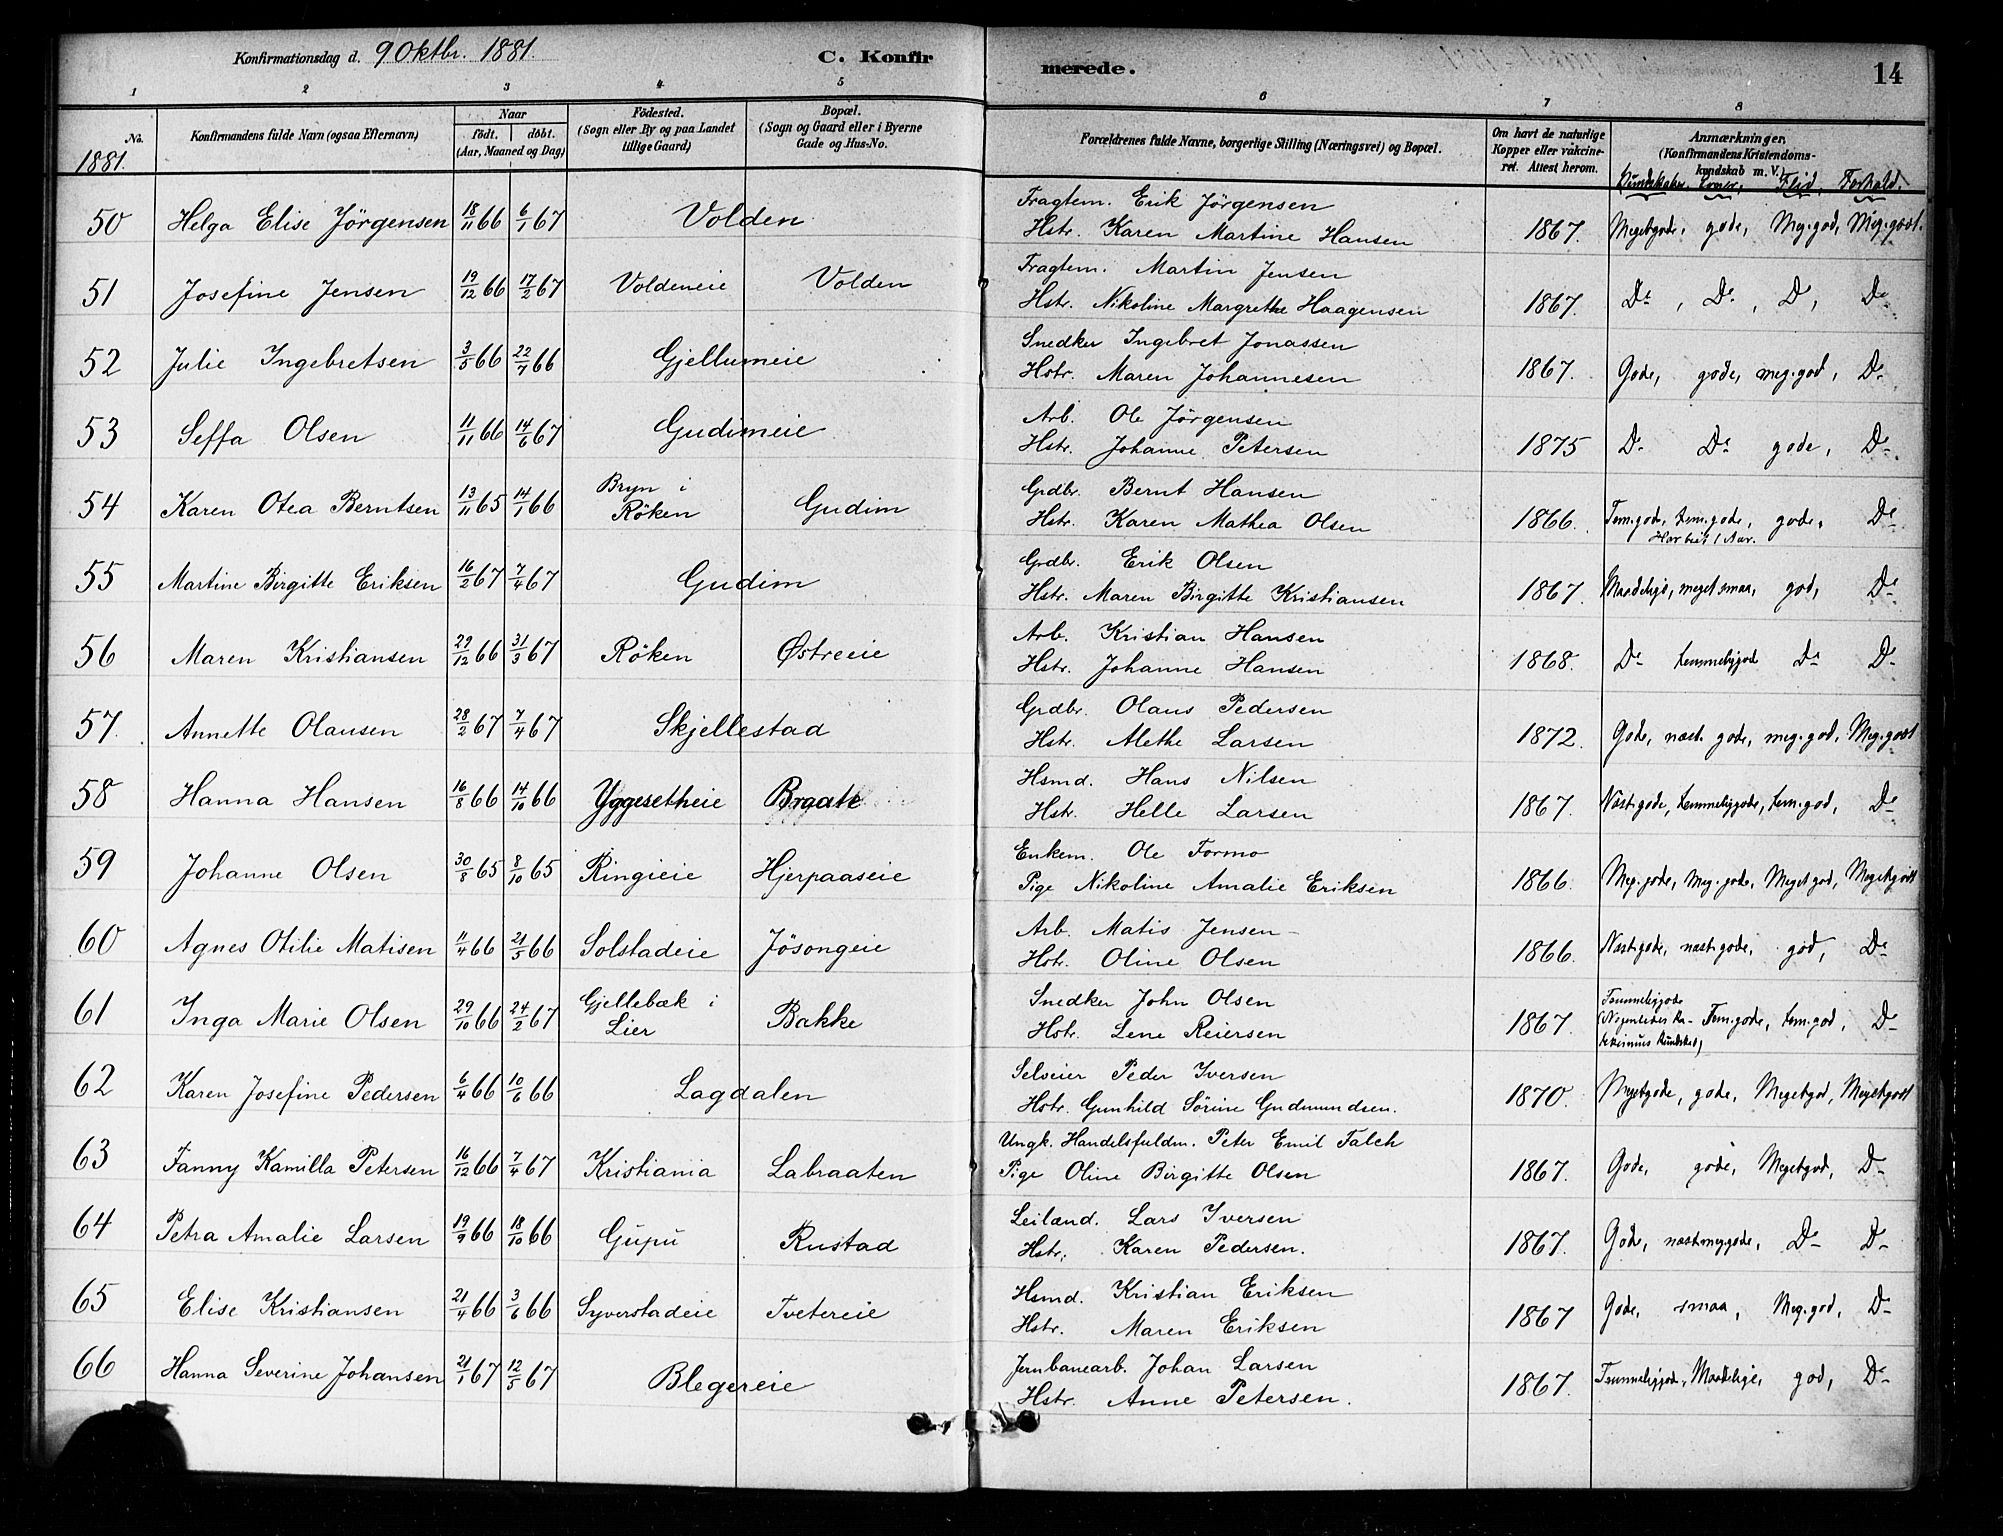 Konfirmationsdag d. 9 Oktbr. 1881. C. Konfirmerede. 14
1 2 3 4 5 6 7 8
No. Konfirmandens fulde Navn (ogsaa Efternavn) Naar født. døbt. (Aar, Maaned og Dag) Fødested. (Sogn eller By og paa Landet tillige Gaard) Bopæl. (Sogn og Gaard eller i Byerne Gade og Hus-No. Forældrenes fulde Navne, borgerlige Stilling (Næringsvei) og Bopæl. Om havt de naturlige Kopper eller vakcineret. Attest herom. Anmærkninger, (Konfirmandens Kristendomskundskab m. V.)
1881. Kundskaber. Evner, Flid, Forhold.
50 Helga Elise Jörgensen 18/11 66 6/1 67 Volden Fragtem. Erik Jørgensen
Hstr. Karen Martine Hansen 1867. Megetgode, gode, Meg.god, Meg.godt.
51 Josefine Jensen 19/12 66 17/2 67 Voldeneie Volden Fragtem. Martin Jensen
Hstr. Nikoline Margrethe Haagensen 1867. Do, Do, Do, Do
52 Julie Ingebretsen 3/5 66 22/7 66 Gjellumeie Snedker Ingebret Jonassen
Hstr. Maren Johannesen 1867. Gode, gode, meg.god, Do
53 Seffa Olsen 11/11 66 14/6 67 Gudimeie Arb. Ole Jørgensen
Hstr. Johanne Petersen 1875 Do Do gode, Do
54 Karen Otea Berntsen 13/11 65 14/1 66 Bryn i Röken Gudim Grdbr. Bernt Hansen
Hstr. Karen Mathea Olsen 1866. Tem.gode, tem.gode, gode, Do
55 Martine Birgitte Eriksen 16/2 67 7/4 67 Gudim Grdbr. Erik Olsen
Hstr. Maren Birgitte Kristiansen 1867. Maadelige, meget smaa, god, Do
56 Maren Kristiansen 22/12 66 31/3 67 Röken Østreeie Arb. Kristian Hansen
Hstr. Johanne Hansen 1868. Do temmeliggod Do Do
57. Annette Olausen 28/2 67 7/4 67 Skjellestad Grdbr. Olaus Pedersen
Hstr. Alethe Larsen 1872. Gode, næst. gode, meg.god, Meg.godt
58 Hanna Hansen 16/8 66 14/10 66 Yggesetheie Braate Hsmd. Hans Nilsen
Hstr. Helle Larsen 1867. Næst.gode, temmeliggode, tem.god, Do
59 Johanne Olsen 30/8 65 8/10 65 Ringieie Hjerpaaseie Enkem. Ole Formo
Pige Nikoline Amalie Eriksen 1866. Meg.gode, meg.gode, Meget god, Megetgodt
60 Agnes Otilie Matisen 11/4 66 21/5 66 Solstadeie Jösongeie Arb. Matis Jensen
Hstr. Oline Olsen 1866. Næst.gode, næst.gode, god, Do
61 Inga Marie Olsen 29/10 66 24/2 67 Gjellebæk i Lier Bakke Snedker John Olsen
Hstr. Lene Reiersen 1867. Temmeliggode Tem.gode, tem.god, Do
62 Karen Josefine Pedersen 6/4 66 10/6 66 Lagdalen Selveier Peder Iversen
Hstr. Gunhild Sörine Gudmundsen. 1870. Megetgode, gode, Megetgod, Megetgodt
63 Fanny Kamilla Petersen 16/12 66 7/4 67 Kristiania Labraaten Ungk. Handelsfuldm. Peter Emil Falch
Pige Oline Birgitte Olsen 1867. Gode, gode, Megetgod, Do
64 Petra Amalie Larsen 19/9 66 18/10 66 Gupu Rustad Leilænd. Lars Iversen
Hstr. Karen Pedersen. 1867. Gode, næstmeg.gode, Do Do
65 Elise Kristiansen 21/4 66 3/6 66 Syverstadeie Tvetereie Hsmd. Kristian Eriksen
Hstr. Maren Eriksen 1867 Gode, smaa, Meg.god, Do
66 Hanna Severine Johansen 21/1 67 12/5 67 Blegereie Jernbanearb. Johan Larsen
Hstr. Anne Petersen. 1867. Temmeliggode, Maadelige, god, Do